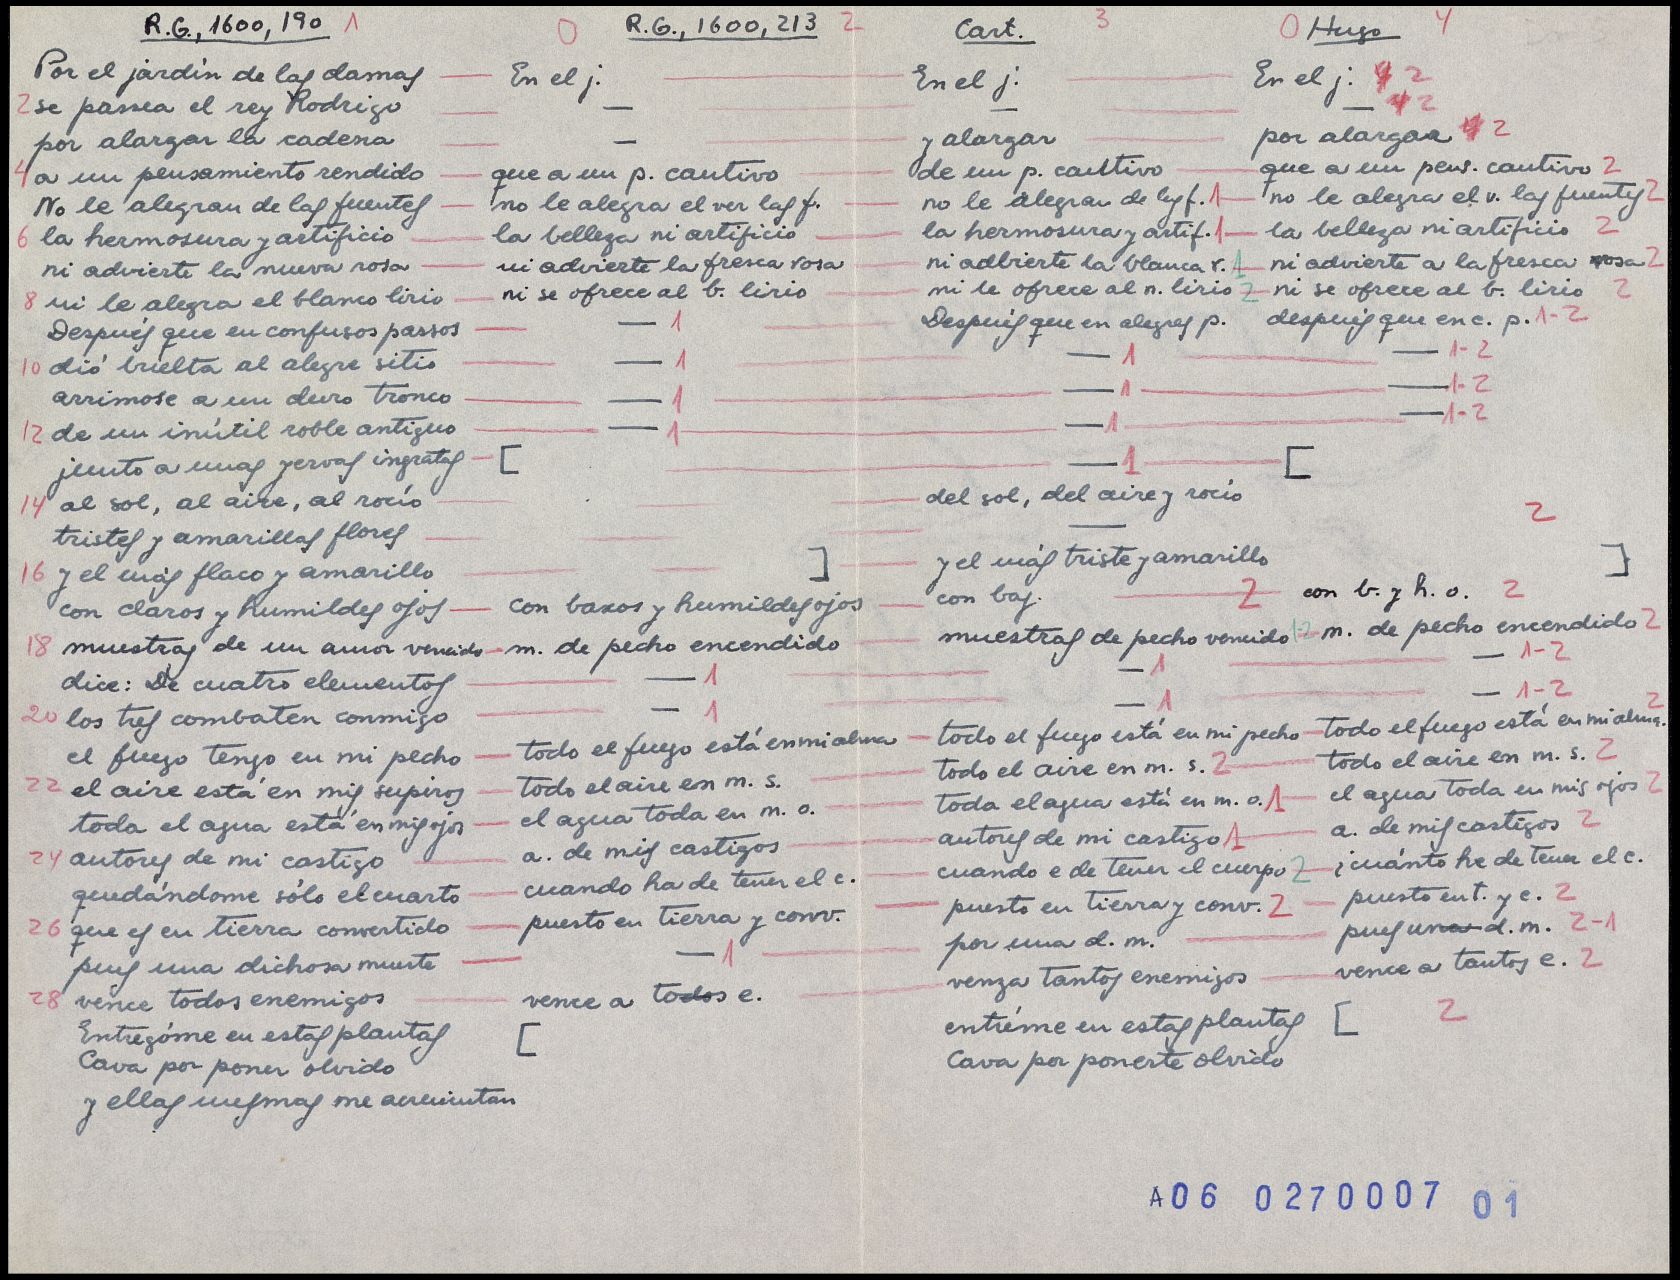 R.G., 1600, 190 1 0 R.G., 1600, 213 2 Cart. 3 0 Hugo 4
Por el jardín de las damas — En el j. — En el j. — En el j. 2
2 se passea el rey Rodrigo — — — — — — 2
por alargar la cadena — — — y alargar — por alargar 2
4 a un pensamiento rendido — que a un p. cautivo — de un p. cautivo — que a un pens. cautivo 2
No le alegran de las fuentes — no le alegra el ver las f. — no le alegran de las f. 1 — no le alegra el v. las fuentes 2
6 la hermosura y artificio — la belleza ni artificio — la hermosura y artif. 1 — la belleza ni artificio 2
ni advierte la nueva rosa — ni advierte la fresca rosa — ni adbierte la blanca r. 1 — ni advierte a la fresca rosa 2
8 ni le alegra el blanco lirio — ni se ofrece al b. lirio — ni le ofrece al n. lirio 2 — ni se ofrece al b. lirio 2
Después que en confusos passos — — 1 — Después que en alegres p. después que en c. p. 1-2
10 dió buelta al alegre sitio — — 1 — — 1 — — 1-2
arrimose a un duro tronco — — 1 — — 1 — — 1-2
12 de un inútil roble antiguo — — 1 — — 1 — — 1-2
junto a unas yervas ingratas — [ — — 1 — [
14 al sol, al aire, al rocío — — — del sol, del aire y rocio
tristes y amarillas flores — — — — 2
16 y el más flaco y amarillo — — ] — y el más triste y amarillo ]
con claros y humildes ojos — con baxos y humildes ojos — con baj. — 2 con b. y h. o. 2
18 muestras de un amor vencido — m. de pecho encendido — muestras de pecho vencido 1-2 — m. de pecho encendido 2
dice: De cuatro elementos — — 1 — — 1 — — 1-2
20 los tres combaten conmigo — — 1 — — 1 — — 1-2
el fuego tengo en mi pecho — todo el fuego está en mi alma — todo el fuego está en mi pecho — todo el fuego está en mi alma. 2
22 el aire está en mis supiros — todo el aire en m. s. — todo el aire en m. s. 2 — todo el aire en m. s. 2
toda el agua está en mis ojos — el agua toda en m. o. — toda el agua está en m. o. 1 — el agua toda en mis ojos 2
24 autores de mi castigo — a. de mis castigos — autores de mi castigo 1 — a. de mis castigos 2
quedándome sólo el cuarto — cuando ha de tener el c. — cuando e de tener el cuerpo 2 — ¡cuánto he de tener el c.
26 que es en tierra convertido — puesto en tierra y conv. — puesto en tierra y conv. 2 — puesto en t. y c. 2
pues una dichosa muerte — — 1 — por una d. m. — pues una d. m. 2-1
28 vence todos enemigos — vence a todos e. — venza tantos enemigos — vence a tantos e. 2
Entregóme en estas plantas [ entréme en estas plantas [ 2
Cava por poner olvido Cava por ponerte olvido
y ellas mesmas me acrecientan
A06 0270007 01